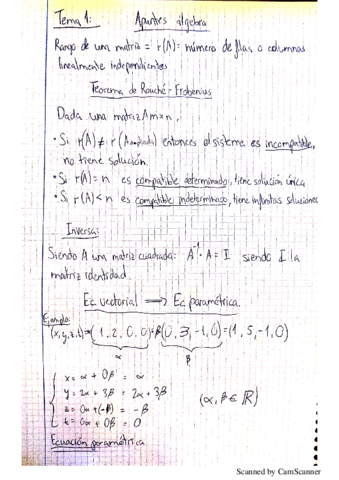 Tema 1: Apuntes álgebra
Rango de una matriz = r(A) = número de filas o columnas
linealmente independientes
Teorema de Rouché-Frobenius
Dada una matriz Amxn,
· Si r(A) ≠ r(Aampliada) entonces el sistema es incompatible,
no tiene solución.
· Si r(A) = n es compatible determinado, tiene solución única
· Si r(A) < n es compatible indeterminado, tiene infinitas soluciones
Inversa:
Siendo A una matriz cuadrada: A⁻¹·A = I siendo I la
matriz identidad.
Ec vectorial ⟹ Ec paramétrica.
Ejemplo:
(x,y,z,t)=(1,2,0,0)+β(0,3,-1,0)=(1,5,-1,0)
α β
x = α + 0β = α
y = 2α + 3β = 2α + 3β
z = 0α + (-β) = -β
t = 0α + 0β = 0
(α, β ∈ ℝ)
Ecuación paramétrica
Scanned by CamScanner